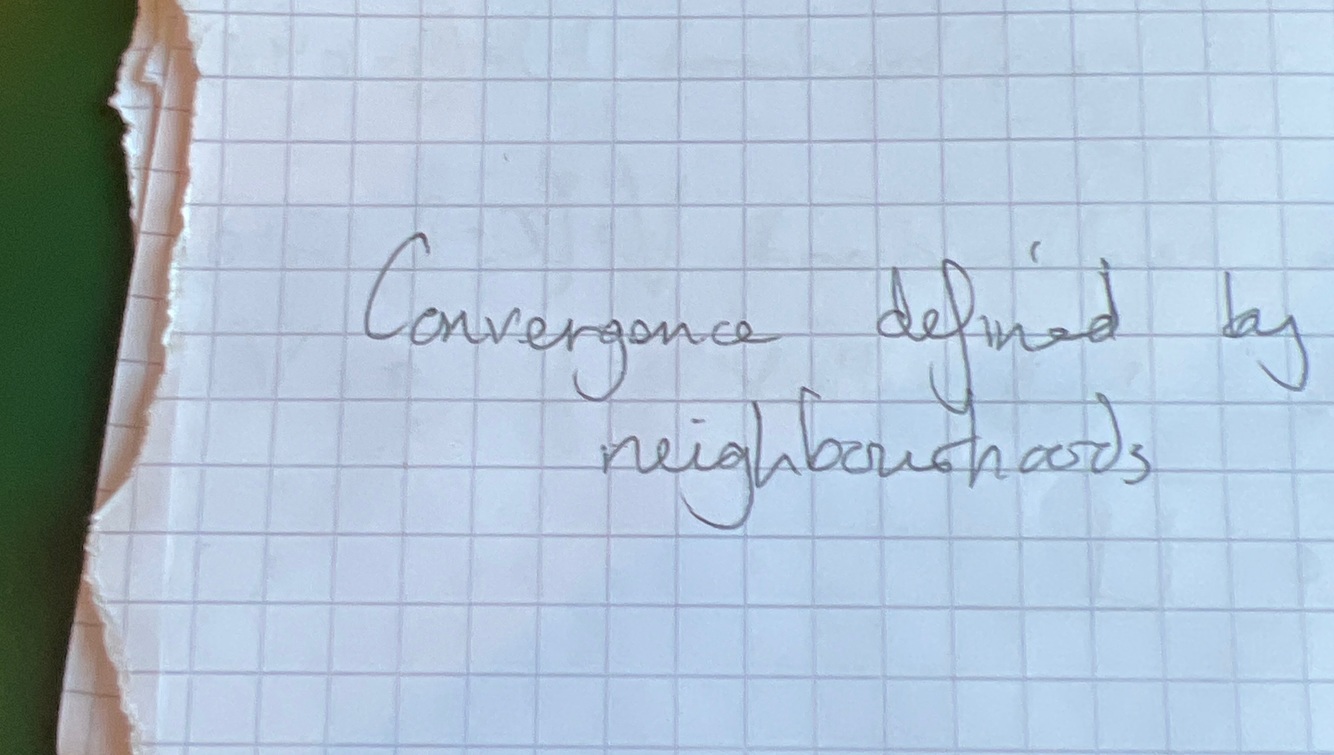 Convergence defined by
neighbourhoods